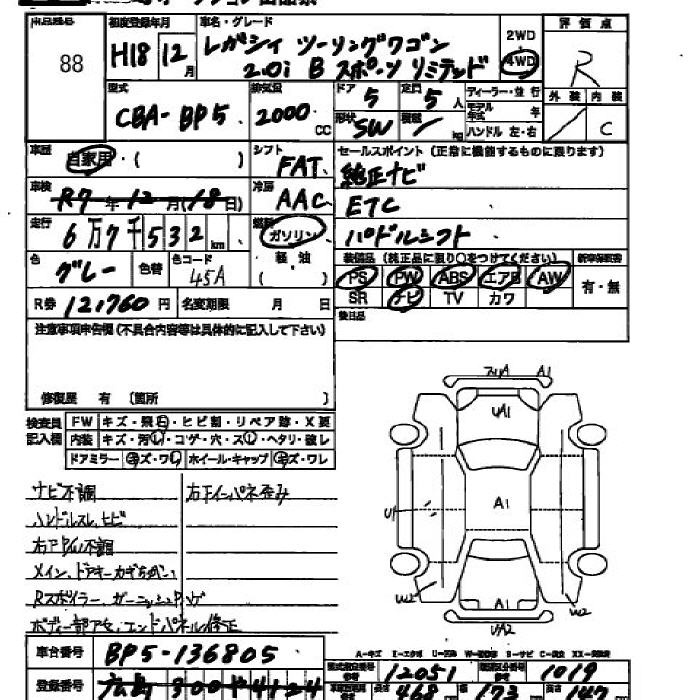 出品番号 88
初度登録年月 H18 12月
車名・グレード
レガシィ ツーリングワゴン
2.0i B スポーツ リミテッド
2WD
4WD
評価点
R
外装 内装
/ C
型式 CBA-BP5
排気量 2000 CC
ドア 5
定員 5 人
形状 SW
積載 / kg
ディーラー・並行
モデル年式 年
ハンドル 左・右
車歴 自家用・( )
シフト FAT
車検 R7年12月(18日)
冷房 AAC
走行 6万7千532km
燃料 ガソリン
軽油
( )
色 グレー 色替
色コード 45A
R券 12,760円
名変期限 月 日
セールスポイント(正常に機能するものに限ります)
純正ナビ
ETC
パドルシフト
装備品(純正品に限り○をつけてください)
新車保証書
PS PW ABS エアB AW
SR ナビ TV カワ
有・無
後日品
注意事項申告欄(不具合内容等は具体的に記入して下さい)
修復歴 有 (箇所 )
検査員記入欄
FW キズ・飛石・ヒビ割・リペア跡・X要
内装 キズ・汚レ・コゲ・穴・スレ・ヘタリ・破レ
ドアミラー キズ・ワレ ホイール・キャップ キズ・ワレ
ナビ不調
右下インパネ歪み
ハンドルスレ、ヒビ
メイン、ドアキーカギちがい
ボディー部アセ、エンドパネル修正
A1
UA1
A1
U1
W2
A1
W2
UA2
車台番号 BP5-136805
登録番号 広島 300 や 4124
A=キズ
12051
1019
468
173
147